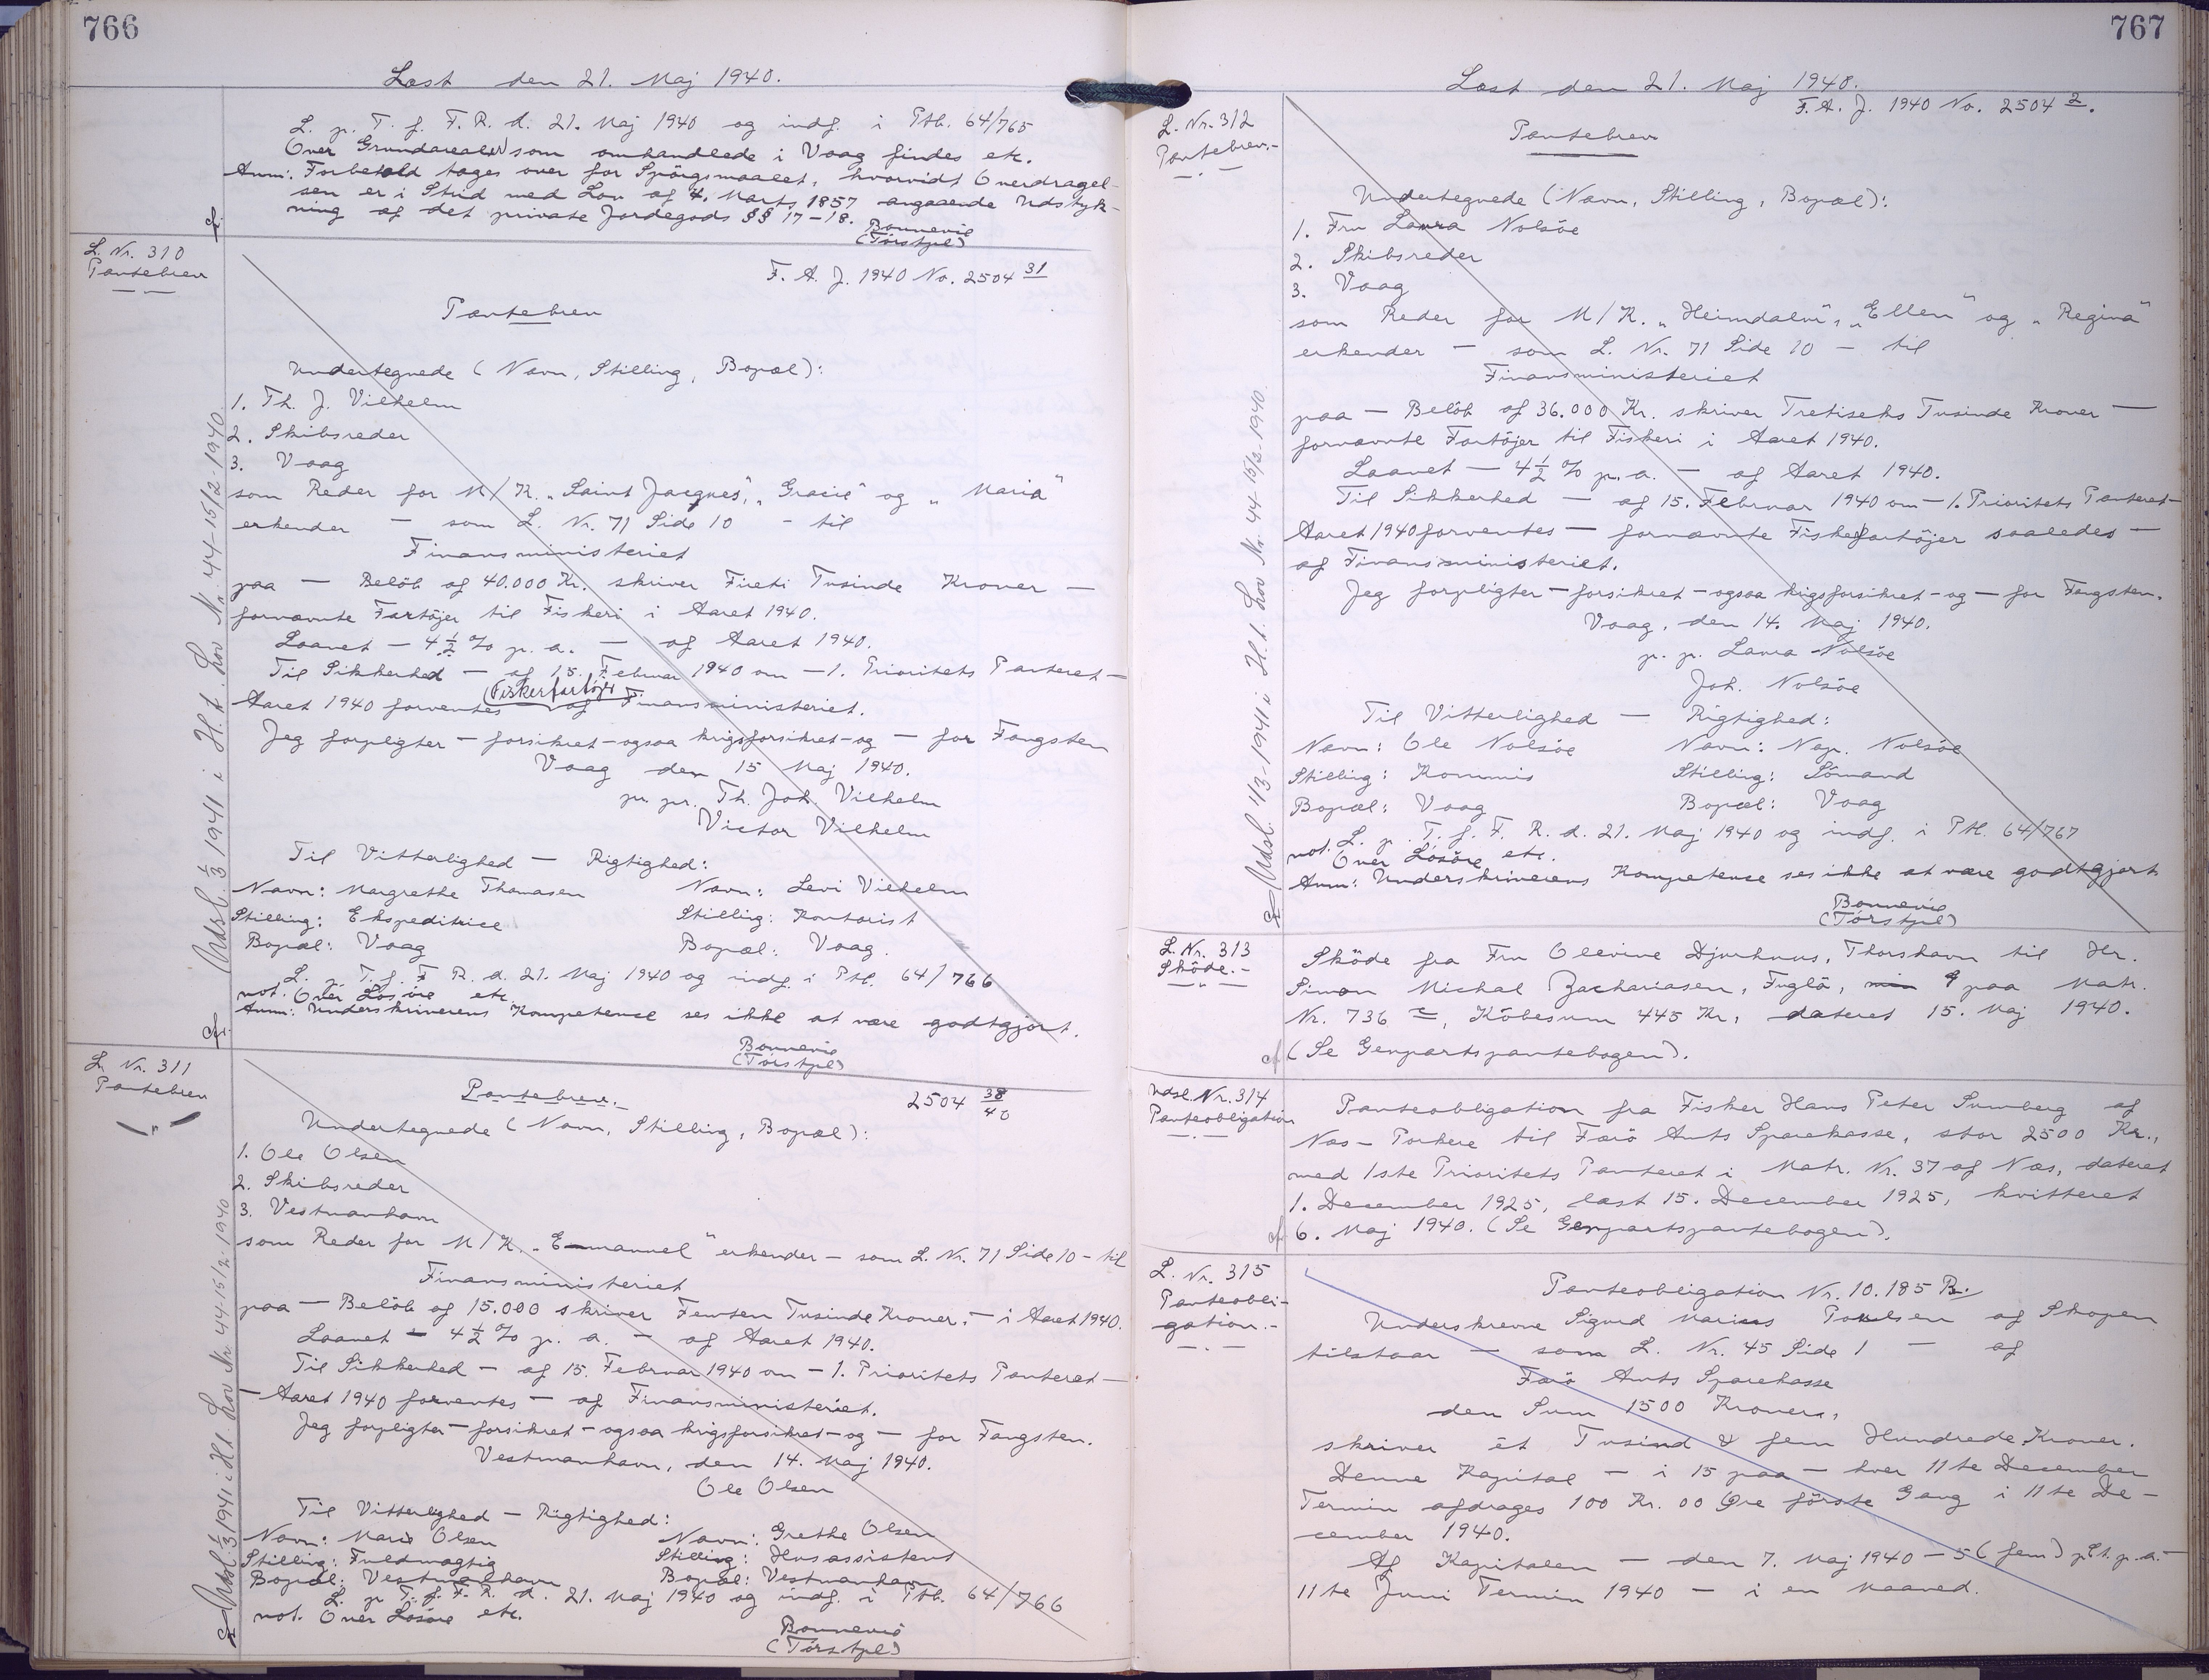 766
Læst den 21. Maj 1940.
L. p. T. f. F. R. d. 21. Maj 1940 og indf. i Ptb. 64/765
Over Grundarealer som omhandlede i Vaag findes etc.
Anm: Forbehold tages over for Spörgsmaalet, hvorvidt Overdragel-
sen er i Strid med Lov af 4. Marts 1857 angaaende Udstyk-
ning af det private Jordegods §§ 17-18.
Bonnevie
(Törstpl)
cf.
L. Nr. 310
Pantebrev
F. A. J. 1940 No. 2504 31
Pantebrev
Undertegnede (Navn, Stilling, Bopæl):
1. Th. J. Vilhelm
2. Skibsreder
3. Vaag
som Reder for M/K. „Saint Jacques", „Gracie" og „Maria"
erkender — som L. Nr. 71 Side 10 - til
Finansministeriet
paa — Belöb af 40.000 Kr. skriver Fireti Tusinde Kroner —
fornævnte Fartöjer til Fiskeri i Aaret 1940.
Laanet — 4½ % p. a. — og Aaret 1940.
Til Sikkerhed — af 15. Februar 1940 om — 1. Prioritets Panteret —
(Fiskerfartøjer
Aaret 1940 forventes af Finansministeriet.
Jeg forpligter — forsikret - ogsaa krigsforsikret - og — for Fangsten
Vaag den 15 Maj 1940.
pr. pr. Th. Joh. Vilhelm
Victor Vilhelm
Til Vitterlighed — Rigtighed:
Navn: Margrethe Thomasen Navn: Levi Vilhelm
Stilling: Ekspeditrice Stilling: Kontorist
Bopæl: Vaag Bopæl: Vaag.
L. p. T. f. F. R. d. 21. Maj 1940 og indf. i Ptb. 64/766
not. Over Lösöre etc.
Anm: Underskriverens Kompetence ses ikke at være godtgjort.
Bonnevie
(Törstpl)
cf. Udsl. 1/3 1941 i H.t. Lov Nr. 44-15/2-1940.
L. Nr. 311
Pantebrev
Pantebrev.
2504 38/40
Undertegnede (Navn, Stilling, Bopæl):
1. Ole Olsen
2. Skibsreder
3. Vestmanhavn
som Reder for M/K. „Emanuel" erkender — som L. Nr. 71 Side 10 - til
Finansministeriet
paa — Belöb af 15.000 skriver Femten Tusinde Kroner, — i Aaret 1940.
Laanet — 4½ % p. a. — og Aaret 1940.
Til Sikkerhed — af 15. Februar 1940 om — 1. Prioritets Panteret —
— Aaret 1940 forventes — af Finansministeriet.
Jeg forpligter — forsikret - ogsaa krigsforsikret - og — for Fangsten.
Vestmanhavn, den 14. Maj 1940.
Ole Olsen
Til Vitterlighed — Rigtighed:
Navn: Marie Olsen Navn: Grethe Olsen
Stilling: Fuldmægtig Stilling: Husassistent
Bopæl: Vestmanhavn Bopæl: Vestmanhavn
L. p. T. f. F. R. d. 21. Maj 1940 og indf. i Ptb. 64/766
not. Over Lösöre etc.
Bonnevie
(Törstpl)
cf. Udsl 1/3 1941 i H.t. Lov Nr 44 15/2. 1940
767
Læst den 21. Maj 1940.
F. A. J. 1940 No. 2504 2.
L. Nr. 312
Pantebrev.-
Pantebrev
Undertegnede (Navn, Stilling, Bopæl):
1. Fru Laura Nolsöe
2. Skibsreder
3. Vaag
som Reder for M/K. „Heimdalur", „Ellen" og „Regina"
erkender — som L. Nr. 71 Side 10 — til
Finansministeriet
paa — Belöb af 36.000 Kr. skriver Tretiseks Tusinde Kroner —
fornævnte Fartöjer til Fiskeri i Aaret 1940.
Laanet — 4½ % p. a. — og Aaret 1940.
Til Sikkerhed — af 15. Februar 1940 om — 1. Prioritets Panteret —
Aaret 1940 forventes — fornævnte Fiskefartöjer saaledes —
af Finansministeriet.
Jeg forpligter — forsikret - ogsaa krigsforsikret - og — for Fangsten.
Vaag, den 14. Maj 1940.
p. p. Laura Nolsöe
Joh. Nolsöe
Til Vitterlighed — Rigtighed:
Navn: Ole Nolsöe Navn: Nap. Nolsöe
Stilling: Kommis Stilling: Sömand
Bopæl: Vaag Bopæl: Vaag
L. p. T. f. F. R. d. 21. Maj 1940 og indf. i Ptb. 64/767
not. Over Lösöre etc.
Anm: Underskriverens Kompetence ses ikke at være godtgjort
Bonnevie
(Törstpl)
cf. Udsl. 1/3-1941 i H.t. Lov Nr. 44-15/2 1940.
L. Nr. 313
Sköde.-
Sköde fra Fru Olevine Djurhuus, Thorshavn til Hr.
Simon Michal Zachariasen, Fuglö, paa Matr.
Nr. 736 c, Köbesum 445 Kr., dateret 15. Maj 1940.
cf. (Se Genpartspantebogen).
Udsl. Nr. 314
Panteobligation
Panteobligation fra Fisker Hans Peter Sumberg af
Næs - Porkere til Færö Amts Sparekasse, stor 2500 Kr.,
med 1ste Prioritets Panteret i Matr. Nr. 37 af Næs, dateret
1. December 1925, læst 15. December 1925, kvitteret
cf. 6. Maj 1940. (Se Genpartspantebogen).
L. Nr. 315
Panteobli-
gation.-
Panteobligation Nr. 10.185 B.
Underskrevne Sigurd Marius Poulsen af Skopen
tilstaar — som L. Nr. 45 Side 1 — af
Færö Amts Sparekasse
den Sum 1500 Kroner,
skriver ét Tusind & fem Hundrede Kroner.
Denne Kapital — i 15 paa — hver 11te December
Termin afdrages 100 Kr. 00 Øre förste Gang i 11te De-
cember 1940.
Af Kapitalen — den 7. Maj 1940 — 5 (fem) pCt. p. a. —
11te Juni Termin 1940 — i en Maaned.